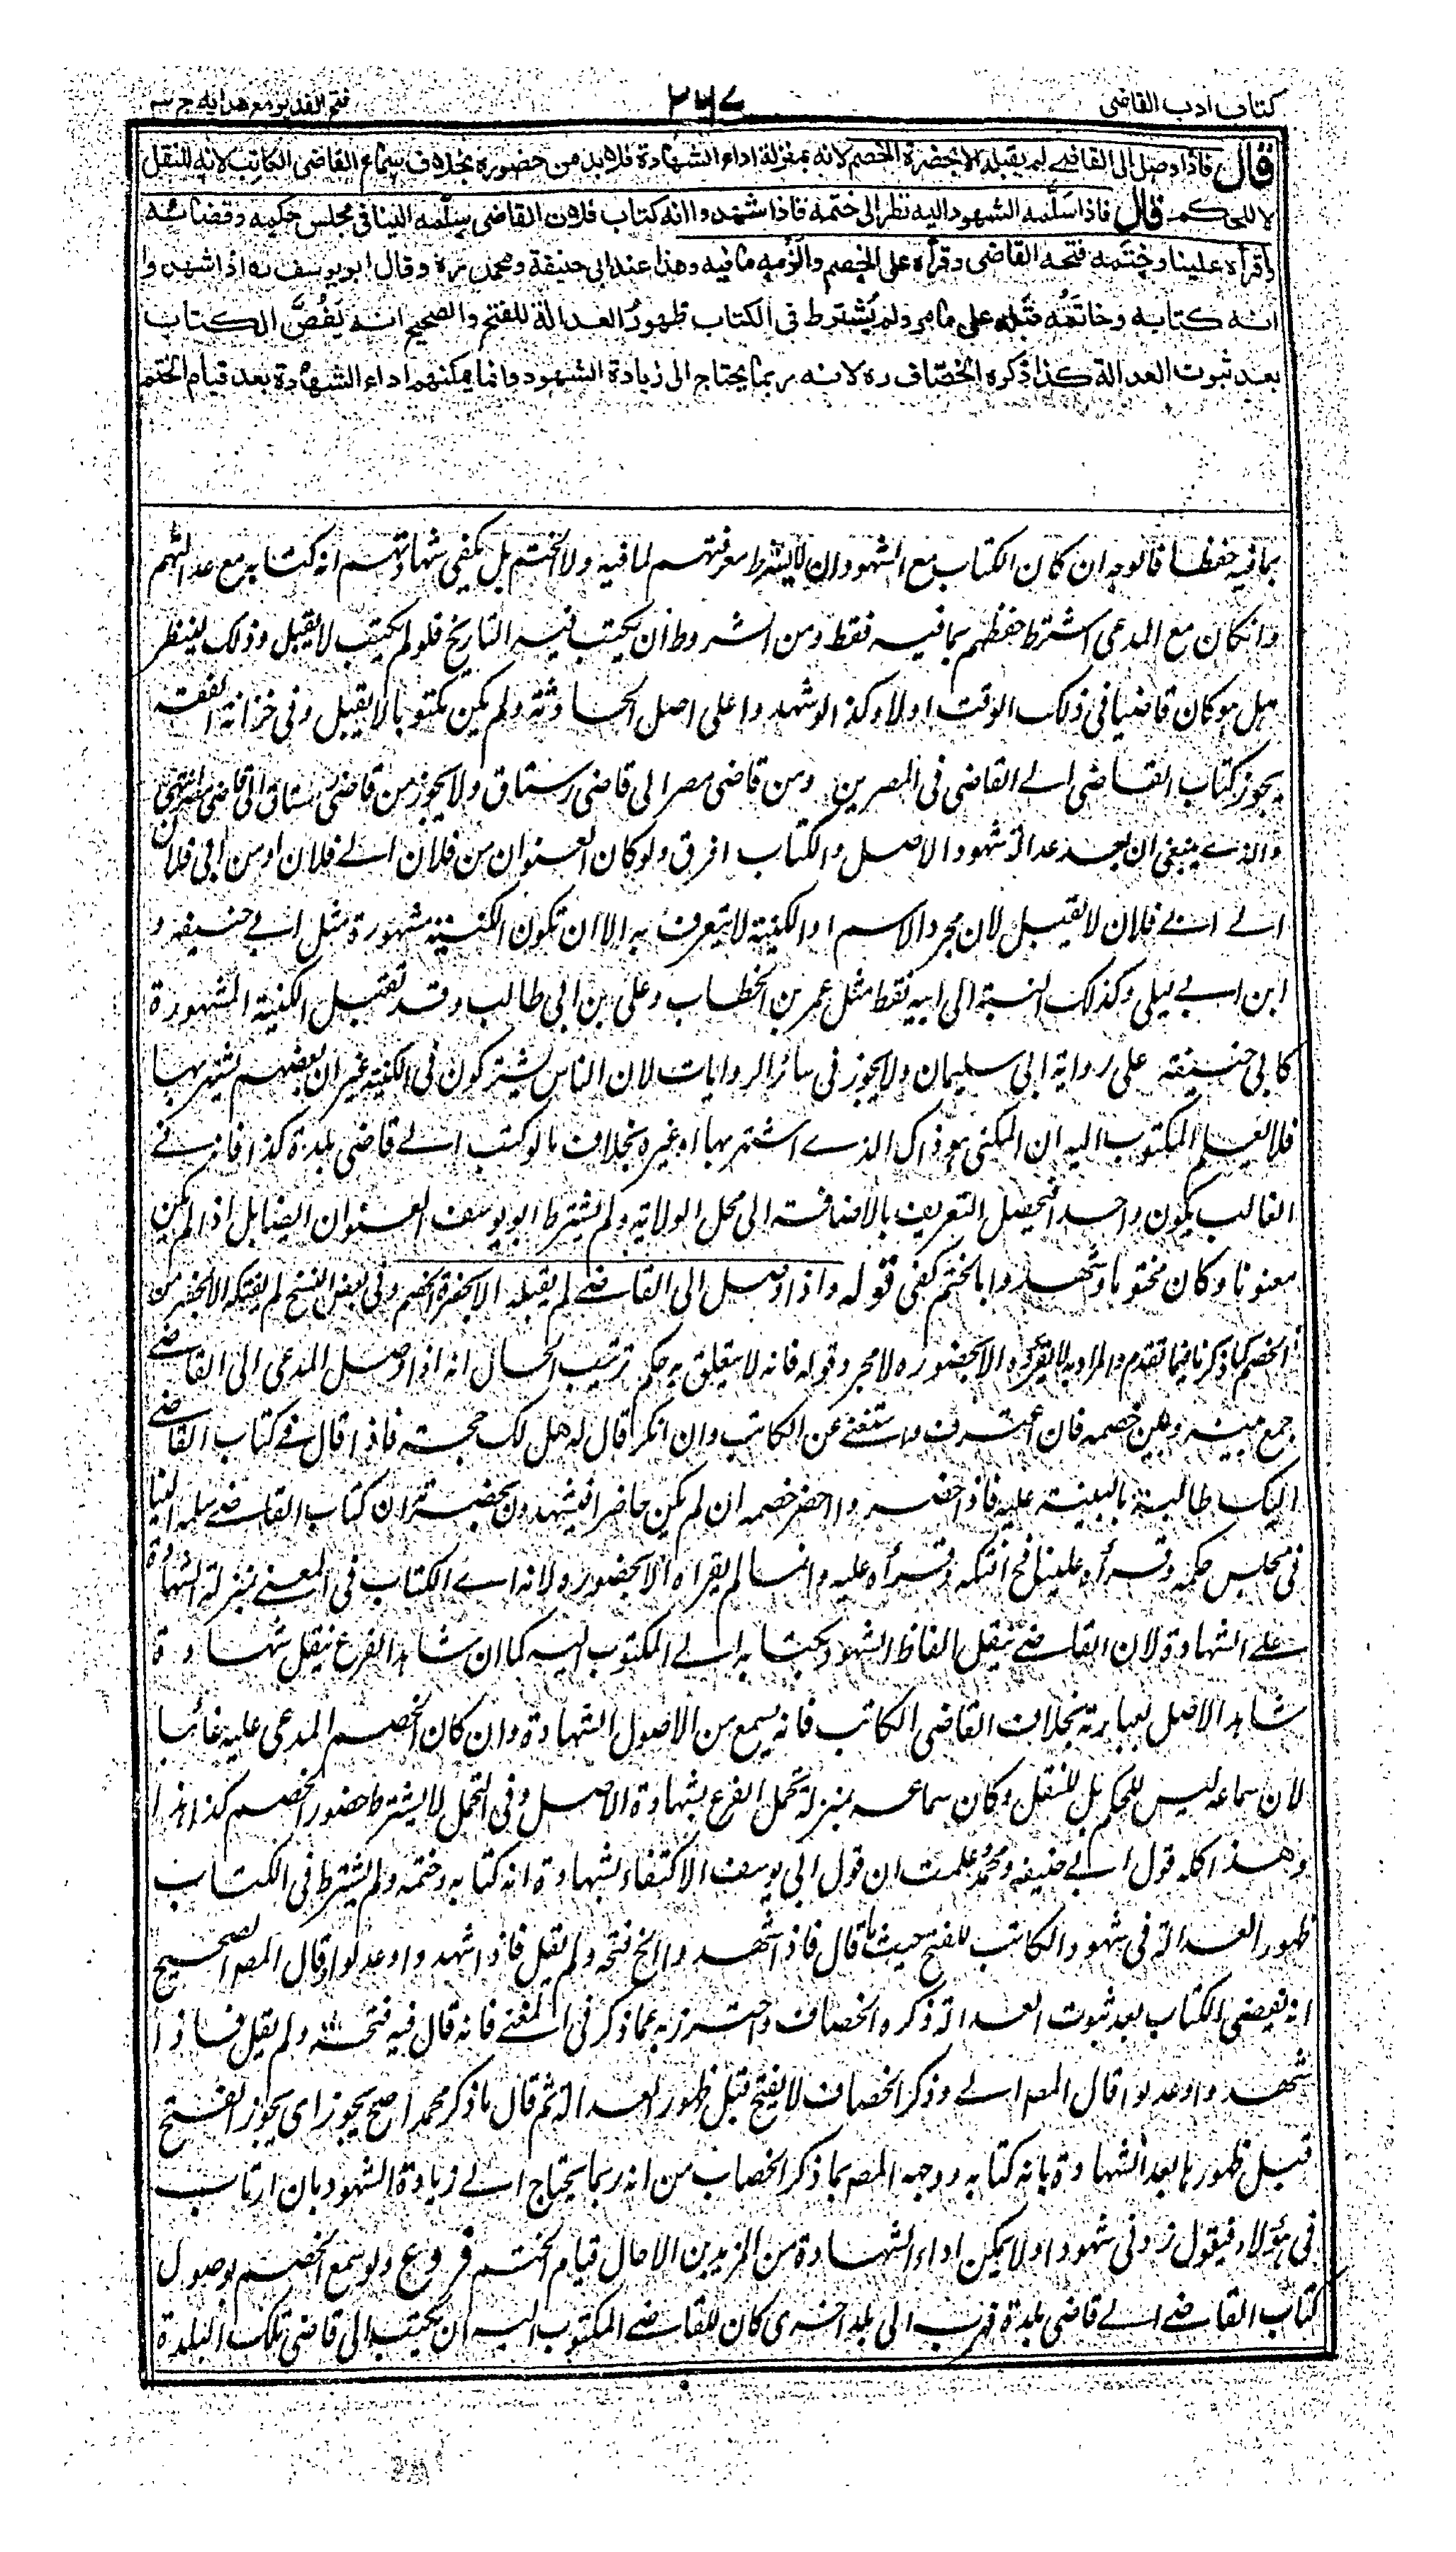 كتاب ادب القاضى
٣٦٧
فتح القدير مع هدايه ج ٣
قال فاذا وصل الى القاضى لم يقبله الا بحضرة الخصم لانه بمنزلة اداء الشهادة فلا بد من حضوره بخلاف سماع القاضى الكاتب لانه للنقل
لا للحكم قال فاذا سلمه الشهود اليه نظر الى ختمه فاذا شهدوا انه كتاب فلان القاضى سلمه الينا فى مجلس حكمه وقضائه
وقرأه علينا وختمه فتحه القاضى وقرأه على الخصم والزمه ما فيه وهذا عند ابى حنيفة ومحمد ره وقال ابو يوسف ره اذا شهدوا
انه كتابه وخاتمه قبله على ما مر ولم يشترط فى الكتاب ظهور العدالة للفتح والصحيح انه يفض الكتاب
بعد ثبوت العدالة كذا ذكره الخصاف ره لانه ربما يحتاج الى زيادة الشهود وانما يمكنهم اداء الشهادة بعد قيام الختم
بما فيه حفظا فالوجه ان كان الكتاب مع الشهود ان لا يشترط معرفتهم لما فيه ولا الختم بل يكفى شهادتهم انه كتابه مع عدالتهم
وان كان مع المدعى اشترط حفظهم بما فيه فقط ومن الشروط ان يكتب فيه التاريخ فلو لم يكتب لا يقبل وذلك لينظر
هل هو كان قاضيا فى ذلك الوقت اولا وكذا لو شهدوا على اصل الحادثة ولم يكن مكتوبا لا يقبل وفى خزانة الفقه
يجوز كتاب القاضى الى القاضى فى المصرين ومن قاضى مصر الى قاضى رستاق ولا يجوز من قاضى رستاق الى قاضى مصر انتهى
والذى ينبغى ان بعد عدالة شهود الاصل والكتاب لا فرق ولو كان العنوان من فلان الى فلان او من ابى فلان
الى ابى فلان لا يقبل لان مجرد الاسم او الكنية لا يتعرف به الا ان تكون الكنية مشهورة مثل ابى حنيفه و
ابن ابى ليلى وكذلك النسبة الى ابيه فقط مثل عمر بن الخطاب وعلى بن ابى طالب وقد تقبل الكنية المشهورة
كابى حنيفه على رواية ابى سليمان ولا يجوز فى سائر الروايات لان الناس يشتركون فى الكنية غير ان بعضهم يشتهر بها
فلا يعلم المكتوب اليه ان المكنى هو ذاك الذى اشتهر بها او غيره بخلاف ما لو كتب الى قاضى بلدة كذا فانه فى
الغالب يكون واحدا فيحصل التعريف بالاضافة الى محل الولاية ولم يشترط ابو يوسف العنوان ايضا بل اذا لم يكن
معنونا وكان مختوما وشهدوا بالختم كفى قوله واذا وصل الى القاضى لم يقبله الا بحضرة الخصم وفى بعض النسخ لم يفتكه الا بحضرة من
الخصم كما ذكرنا فيما تقدم والمراد به لا يقرؤه الا بحضوره لا مجرد قبوله فانه لا يتعلق به حكم ترتيب الحال انه اذا وصل المدعى الى القاضى
جمع بينه وبين خصمه فان اعترف استغنى عن الكاتب وان انكر قال له هل لك حجة فاذا قال فى كتاب القاضى
اليك طالبه بالبينة عليه فاذا حضروا احضر خصمه ان لم يكن حاضرا فيشهدون بحضرته ان كتاب القاضى سلمه الينا
فى مجلس حكمه وقرأه علينا الخ افتكه وقرأه عليه وانما لم يقرأه الا بحضوره لانه اى الكتاب فى المعنى بمنزلة الشهادة
على الشهادة لان القاضى ينقل الفاظ الشهود بكتابه الى المكتوب اليه كما ان شاهد الفرع ينقل شهادة
شاهد الاصل بعبارته بخلاف القاضى الكاتب فانه يسمع من الاصول الشهادة وان كان الخصم المدعى عليه غائبا
لان سماعه ليس للحكم بل للنقل وكان سماعه بمنزلة تحمل الفرع بشهادة الاصل وفى التحمل لا يشترط حضور الخصم كذا هذا
وهذا كله قول ابى حنيفه ومحمد وعلمت ان قول ابى يوسف الاكتفاء بشهادة انه كتابه وختمه ولم يشترط فى الكتاب
ظهور العدالة فى شهود الكاتب للفتح حيث قال فاذا شهدوا الخ فتحه ولم يقل فاذا شهدوا وعدلوا وقال المصه الصحيح
انه يفض الكتاب بعد ثبوت العدالة ذكره الخصاف واحترز به عما ذكر فى المغنى فانه قال فيه فتحه ولم يقل فاذا
شهدوا وعدلوا قال المصه الى وذكر الخصاف لا يفتح قبل ظهور العدالة ثم قال ما ذكر محمد اصح يجوز اى يجوز الفتح
قبل ظهورها بعد الشهادة بانه كتابه ووجهه المصه بما ذكر الخصاب من انه ربما يحتاج الى زيادة الشهود بان ارتاب
فى هؤلاء فيقول زدنى شهودا ولا يمكن اداء الشهادة من المزيدين الا حال قيام الختم فروع ولو سمع الخصم بوصول
كتاب القاضى الى قاضى بلدة فهرب الى بلد اخرى كان للقاضى المكتوب اليه ان يكتب الى قاضى تلك البلدة